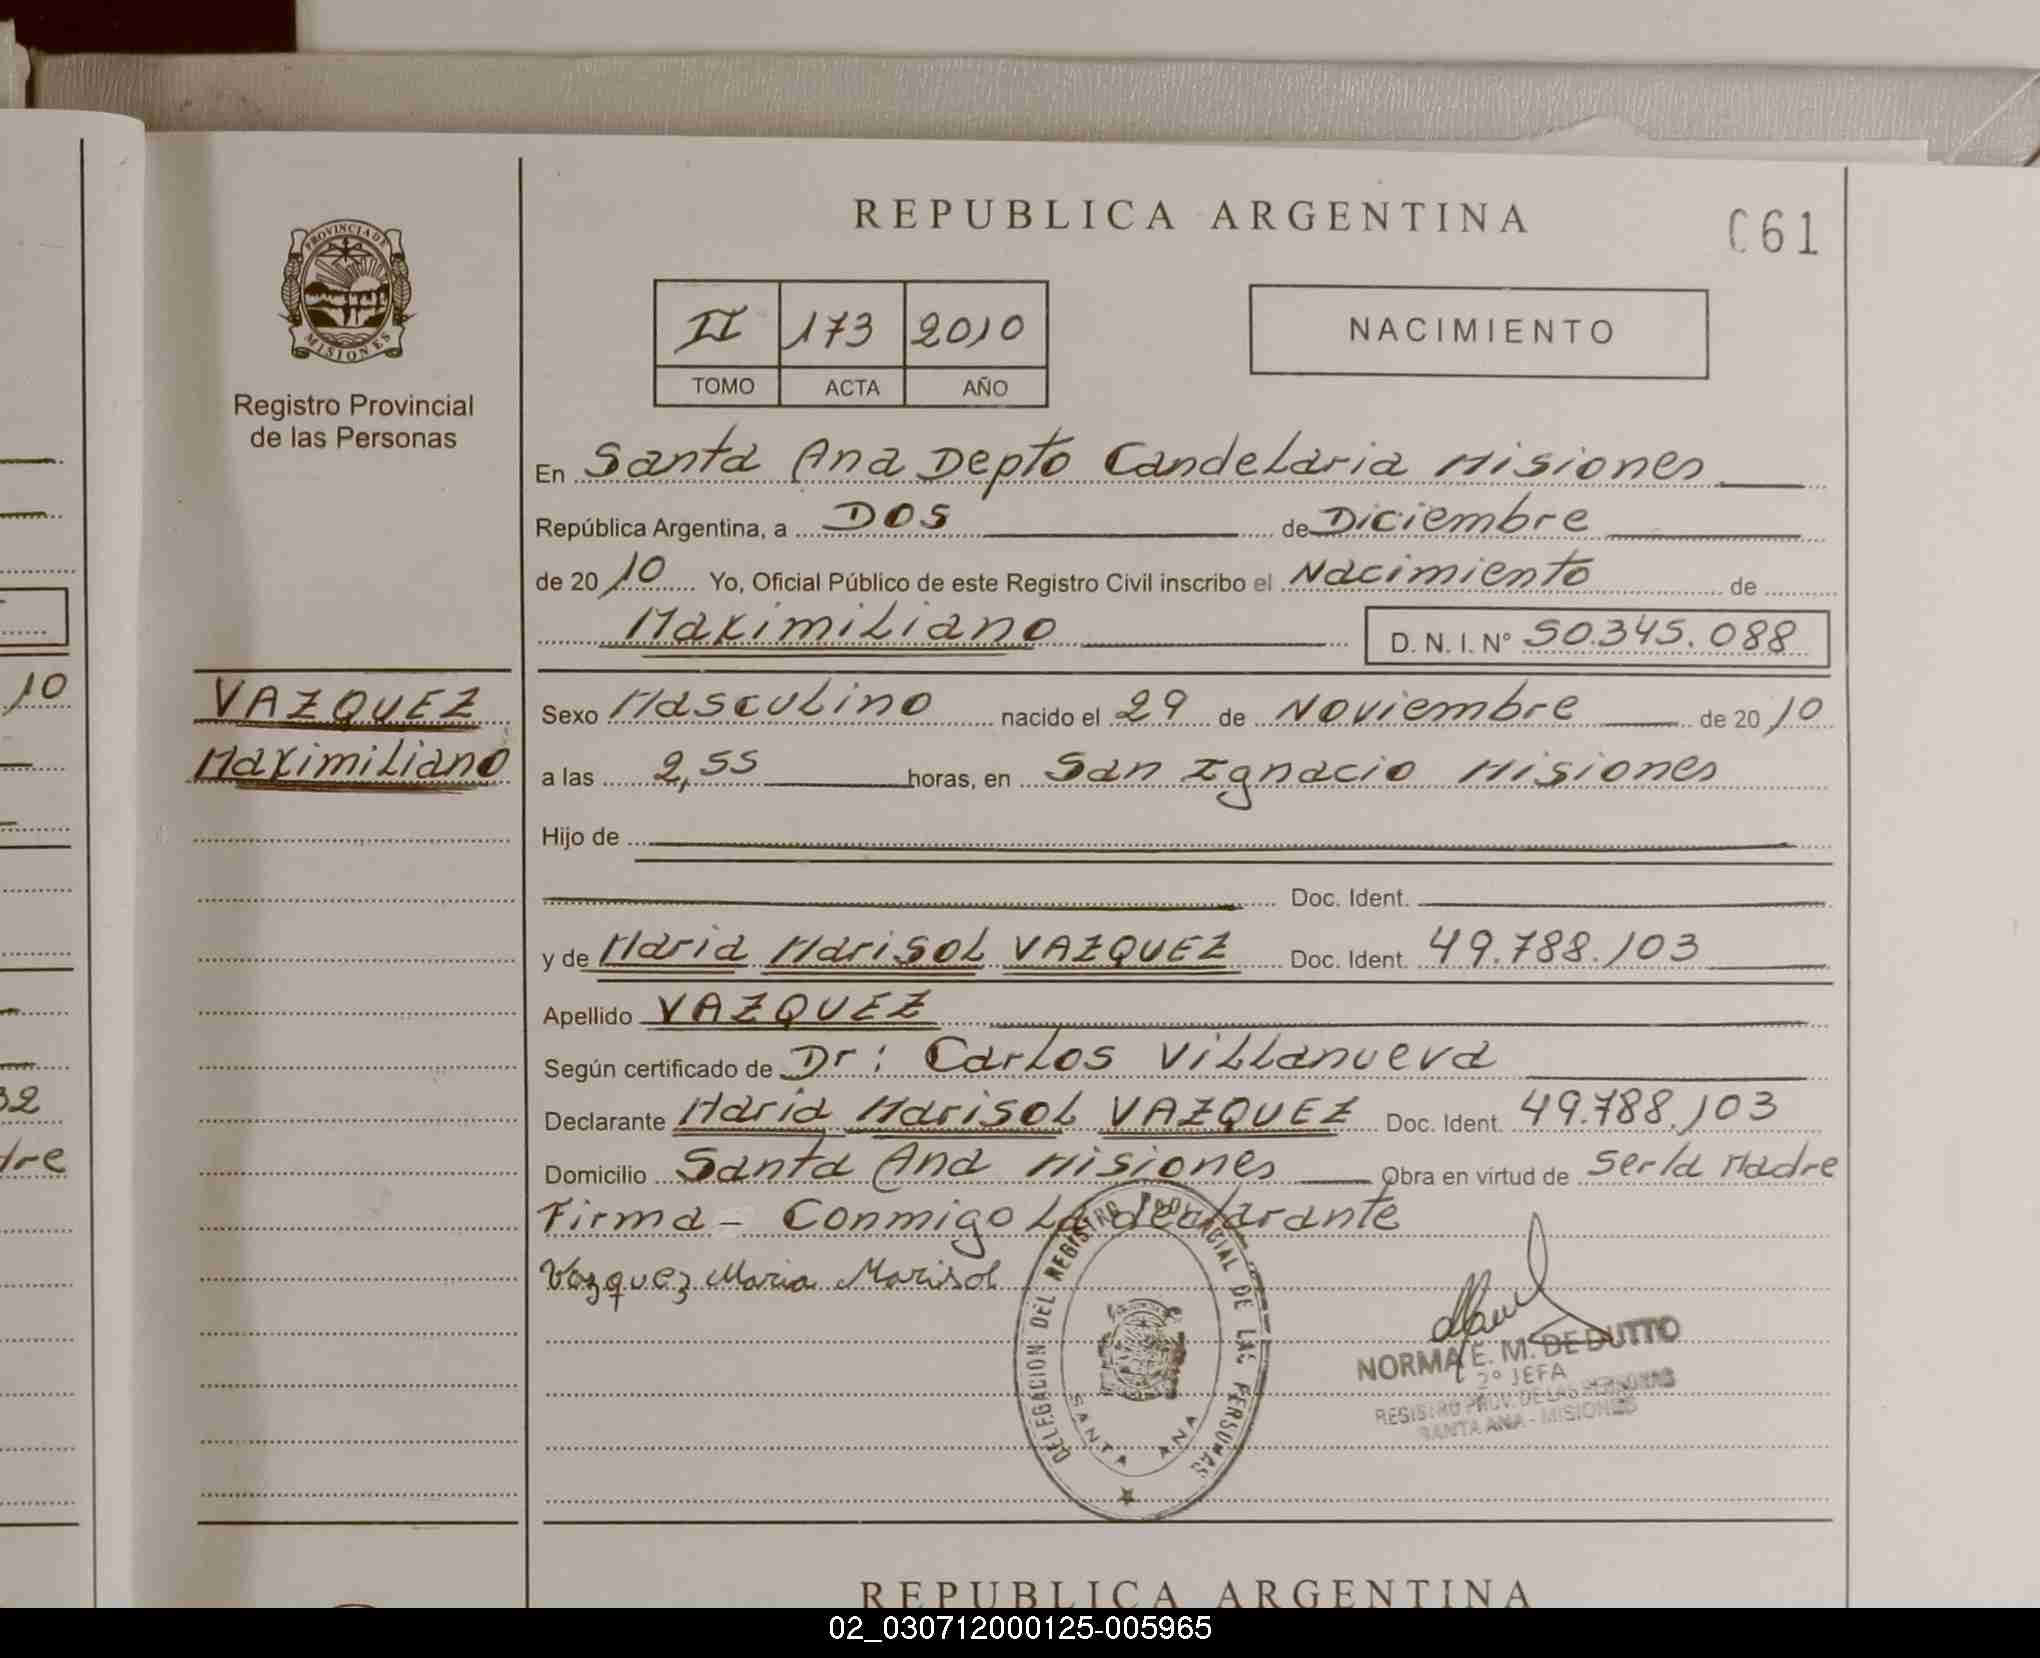 REPUBLICA ARGENTINA
C61
PROVINCIA DE
MISIONES
Registro Provincial
de las Personas
II 173 2010
TOMO ACTA AÑO
NACIMIENTO
En Santa Ana Depto Candelaria Misiones
República Argentina, a DOS de Diciembre
de 20 10 Yo, Oficial Público de este Registro Civil inscribo el Nacimiento de
Maximiliano D. N. I. N° 50.345.088
10
VAZQUEZ
Maximiliano
Sexo Masculino nacido el 29 de Noviembre de 20 10
a las 2,55 horas, en San Ignacio Misiones
Hijo de
Doc. Ident.
y de Maria Marisol VAZQUEZ Doc. Ident. 49.788.103
Apellido VAZQUEZ
Según certificado de Dr: Carlos Villanueva
32
Declarante Maria Marisol VAZQUEZ Doc. Ident. 49.788.103
dre
Domicilio Santa Ana Misiones Obra en virtud de Ser la Madre
Firma - Conmigo La declarante
Vazquez Maria Marisol
DELEGACION DEL REGISTRO PROVINCIAL DE LAS PERSONAS
SANTA ANA
NORMA E. M. DE DUTTO
2° JEFA
REGISTRO PROV. DE LAS PERSONAS
SANTA ANA - MISIONES
REPUBLICA ARGENTINA
02_030712000125-005965